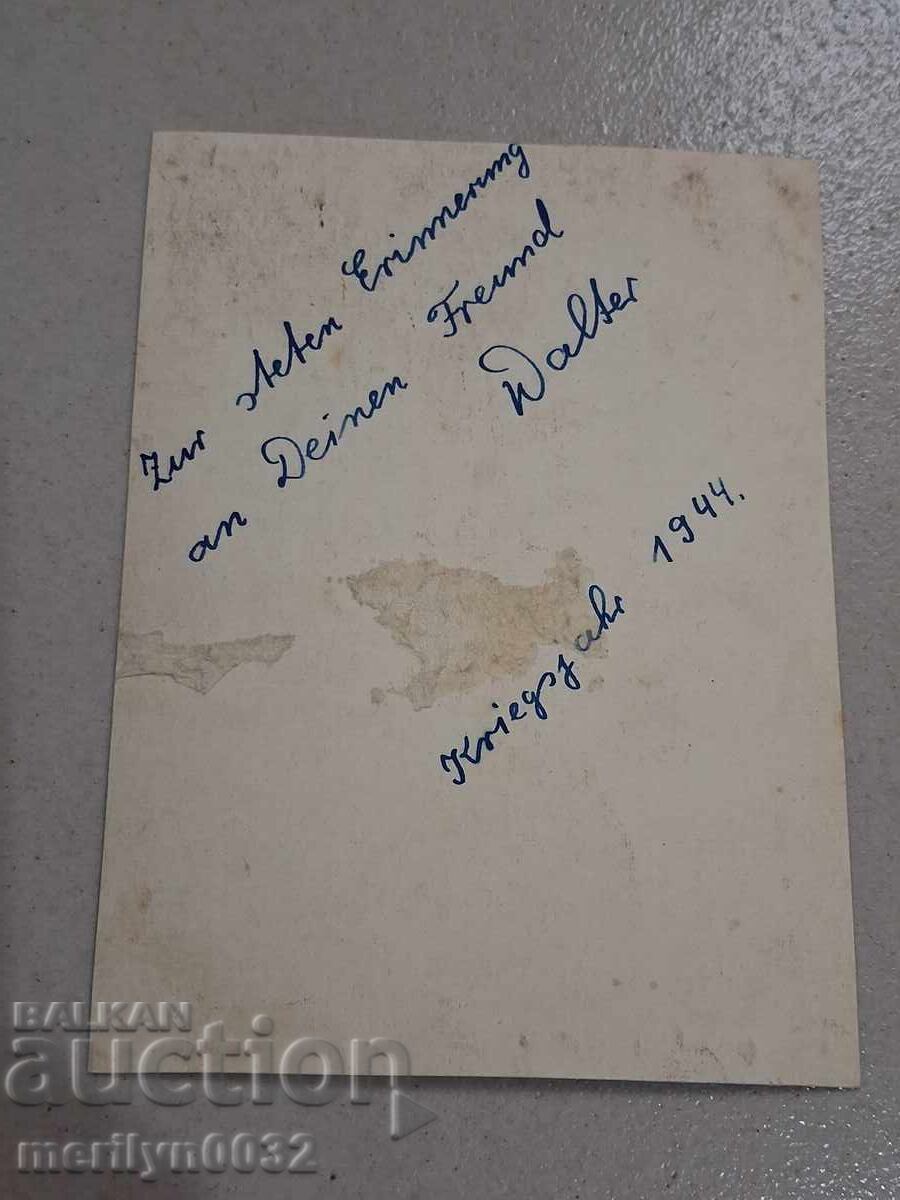 Zur steten Erinnerung
an Deinen Freund
Walter
Kriegsjahr 1944.
BALKAN
auction
merilyn0032